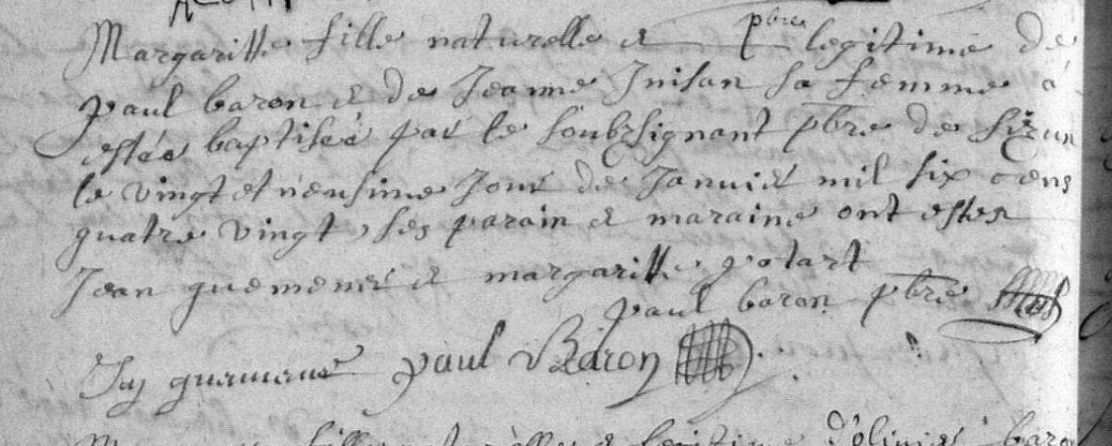 Margaritte fille naturelle & pbre legitime de
paul baron & de Jeanne Inisan sa femme a
estée baptisée par le soubzsignant pbre de sizun
le vingt et neufsime Jour de Januier mil six cens
quatre vingt, ses parain & maraine ont estes
Jean guemener & margaritte polart
paul baron pbre
paul Baron
fille